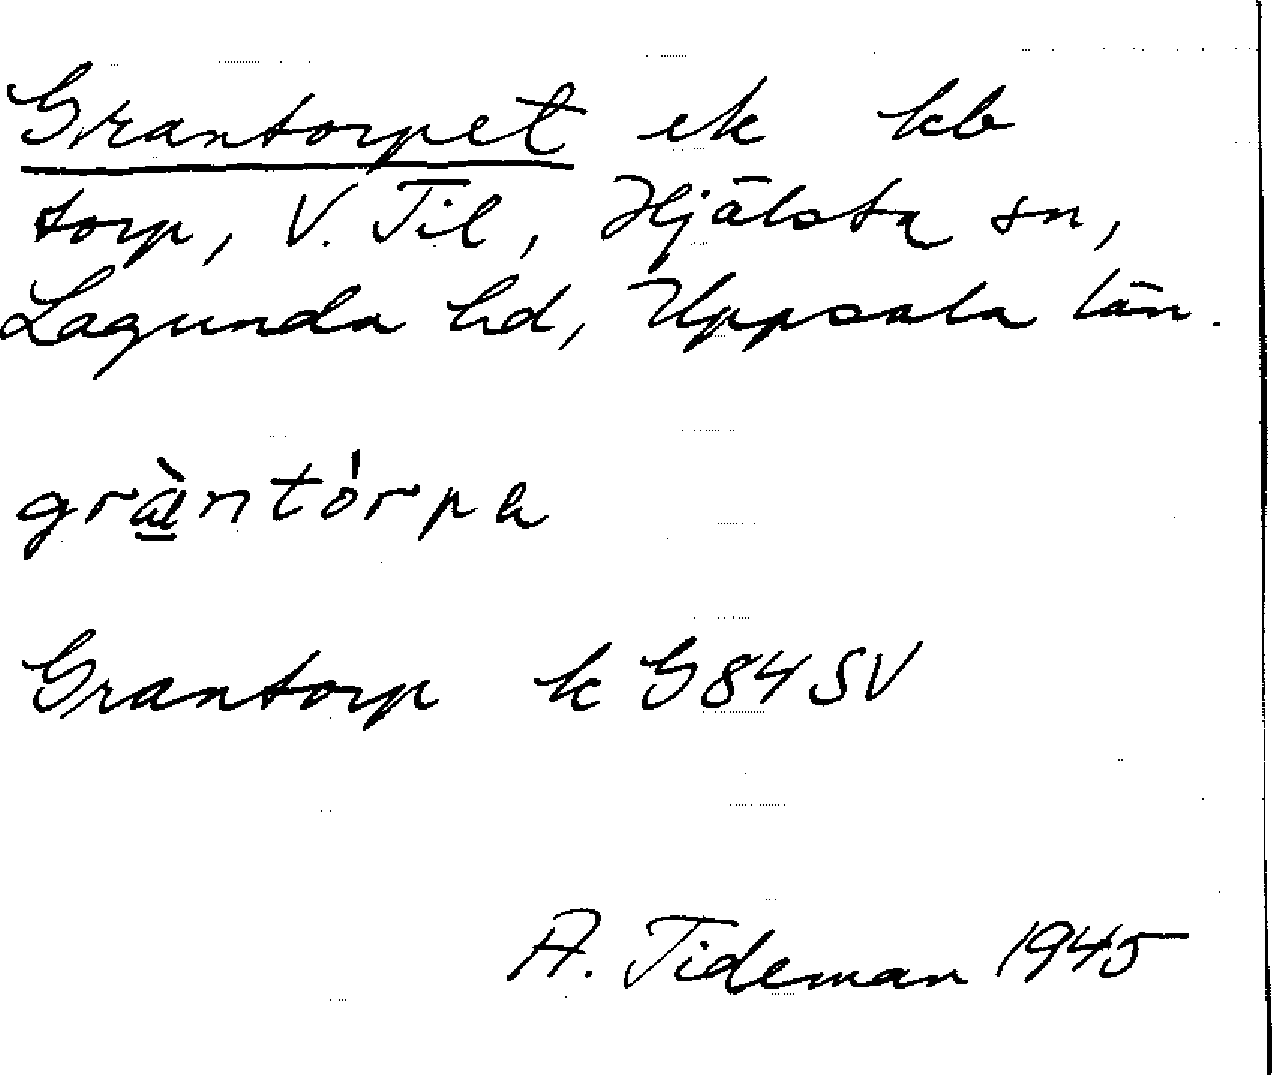 Grantorpet ek kb
torp, V. Til, Hjälsta sn,
Lagunda hd, Uppsala län.
gràntórpa
Grantorp k G84SV
A. Tideman 1945